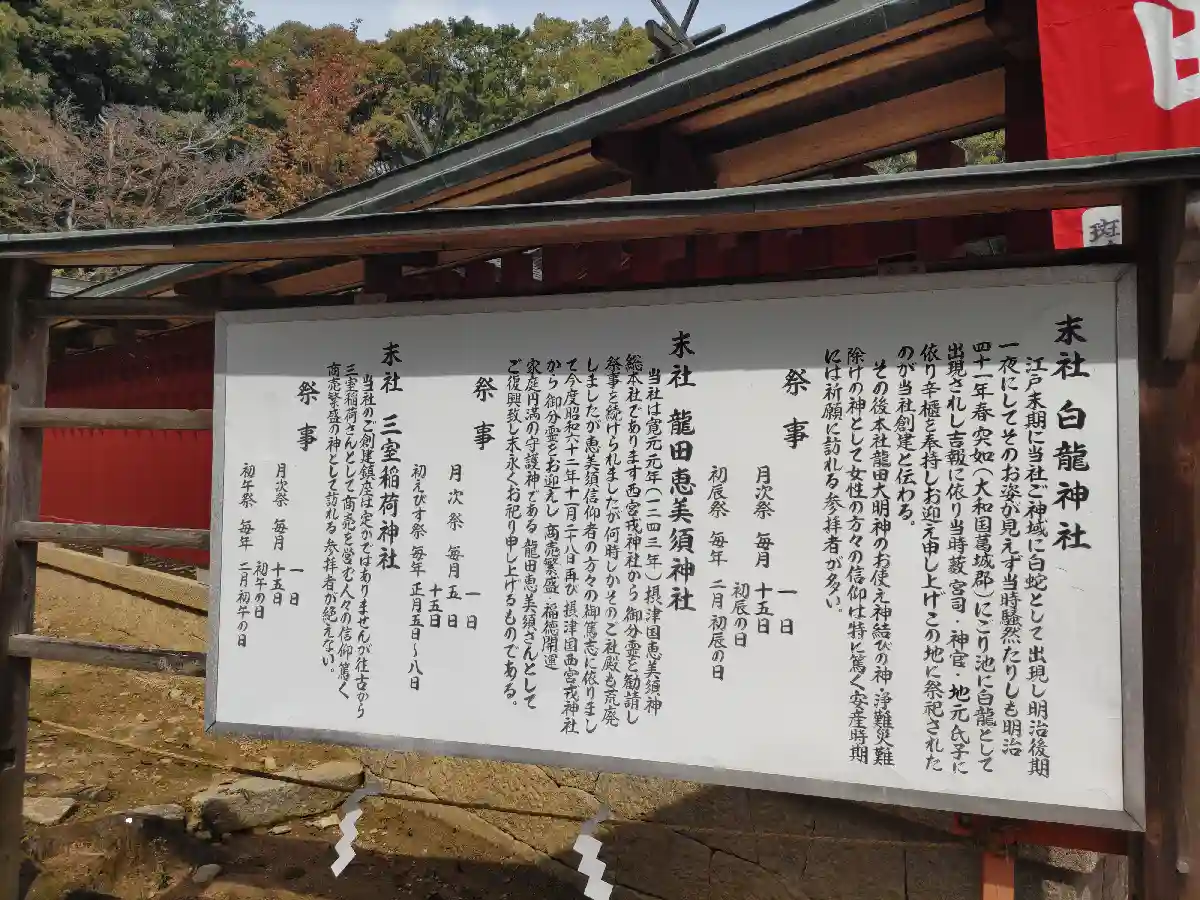 末社 白龍神社
江戸末期に当社ご神域に白蛇として出現し明治後期
一夜にしてそのお姿が見えず当時騒然たりしも明治
四十一年春突如(大和国葛城郡)にごり池に白龍として
出現されし吉報に依り当時薮宮司・神官・地元氏子に
依り辛櫃を奉持しお迎え申し上げこの地に祭祀された
のが当社創建と伝わる。
その後本社龍田大明神のお使え神結びの神・浄難災難
除けの神として女性の方々の信仰は特に篤く安産時期
には祈願に訪れる参拝者が多い。
祭事
月次祭 毎月 一日
十五日
初辰祭 毎年 初辰の日
二月初辰の日
末社 龍田恵美須神社
当社は寛元元年(一二四三年)摂津国恵美須神
総本社であります西宮戎神社から御分霊を勧請し
祭事を続けられましたが何時しかそのご社殿も荒廃
しましたが恵美須信仰者の方々の御篤志に依りまし
て今度昭和六十二年十一月二十八日再び摂津国西宮戎神社
から御分霊をお迎えし商売繁盛・福徳開運
家庭円満の守護神である龍田恵美須さんとして
ご復興致し末永くお祀り申し上げるものである。
祭事
月次祭 毎月 一日
五日
十五日
初えびす祭 毎年 正月五日～八日
末社 三室稲荷神社
当社のご創建鎮座は定かではありませんが往古から
三室稲荷さんとして商売を営む人々の信仰篤く
商売繁盛の神として訪れる参拝者が絶えない。
祭事
月次祭 毎月 一日
十五日
初午祭 毎年 初午の日
二月初午の日